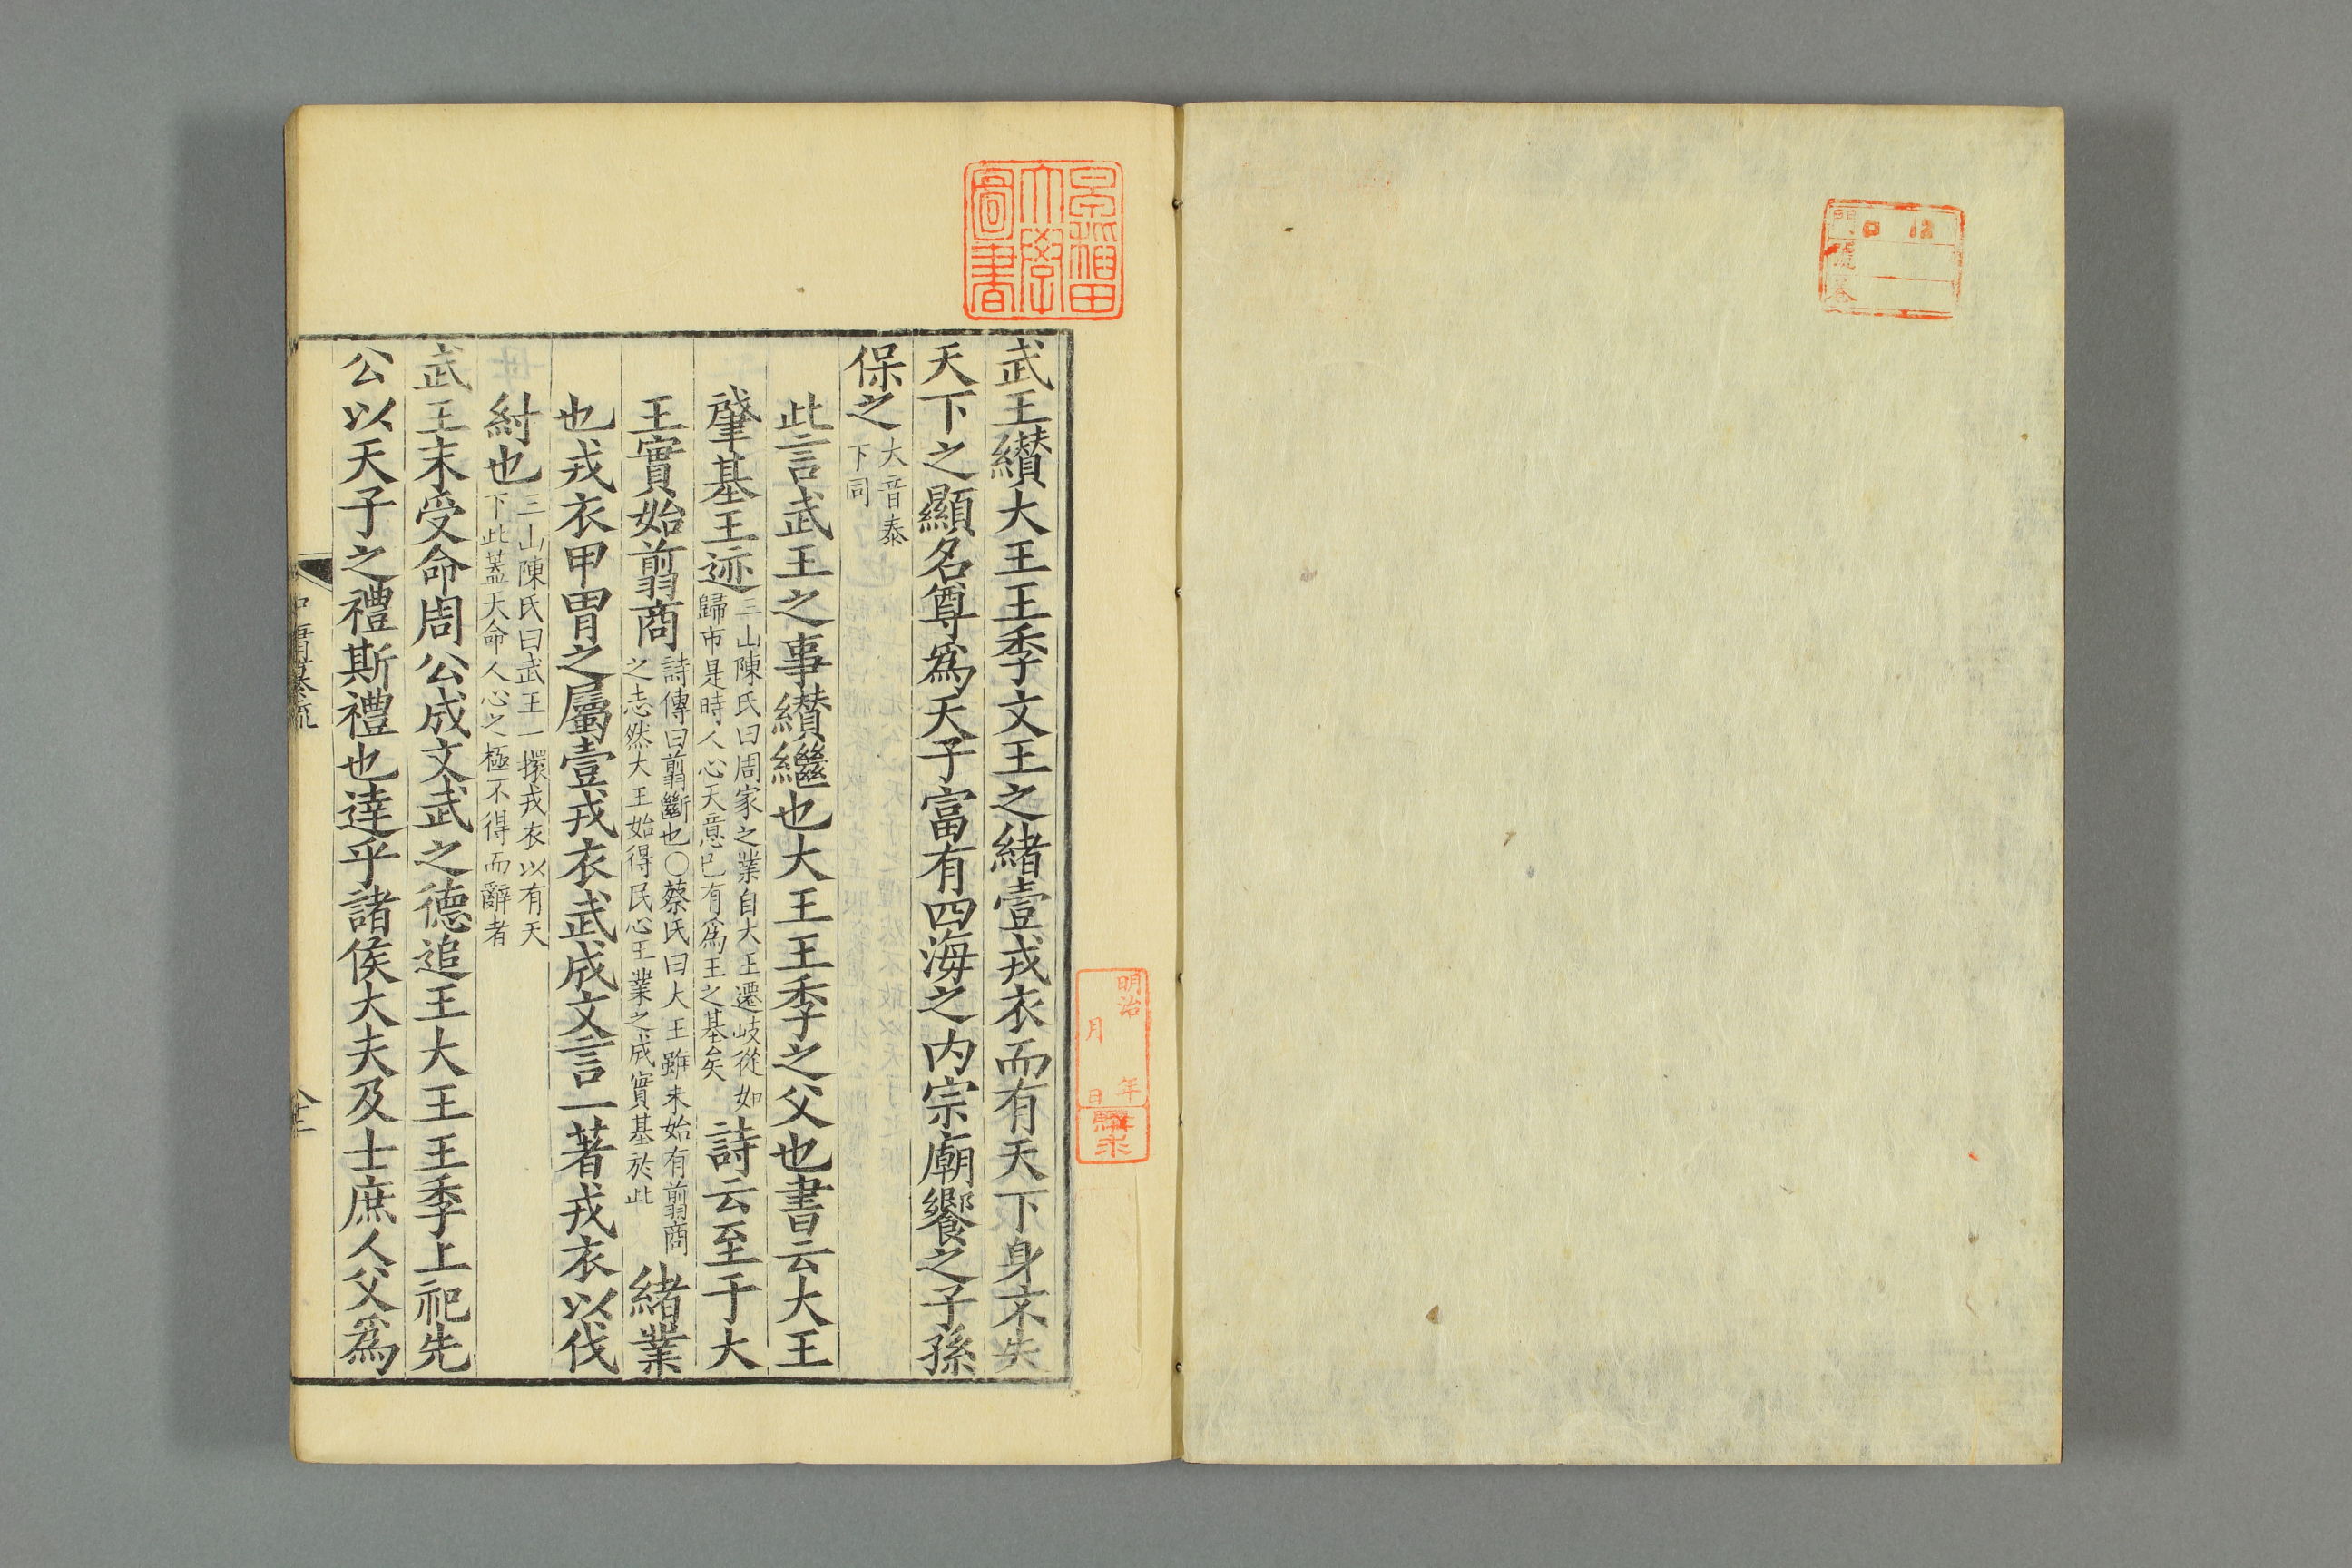 門 ロ 12
號
卷
早稲田
大學
圖書
明治 年
月 日
購求
武王纉大王王季文王之緒壹戎衣而有天下身不失
天下之顯名尊爲天子富有四海之内宗廟饗之子孫
保之
大音泰
下同
此言武王之事纉繼也大王王季之父也書云大王
肇基王迹
三山陳氏曰周家之業自大王遷岐從如
歸市是時人心天意已有爲王之基矣
詩云至于大
王實始翦商
詩傳曰翦斷也○蔡氏曰大王雖未始有翦商
之志然大王始得民心王業之成實基於此
緒業
也戎衣甲胄之屬壹戎衣武成文言一著戎衣以伐
紂也
三山陳氏曰武王一擐戎衣以有天
下此蓋天命人心之極不得而辭者
武王末受命周公成文武之德追王大王王季上祀先
公以天子之禮斯禮也達乎諸侯大夫及士庶人父爲